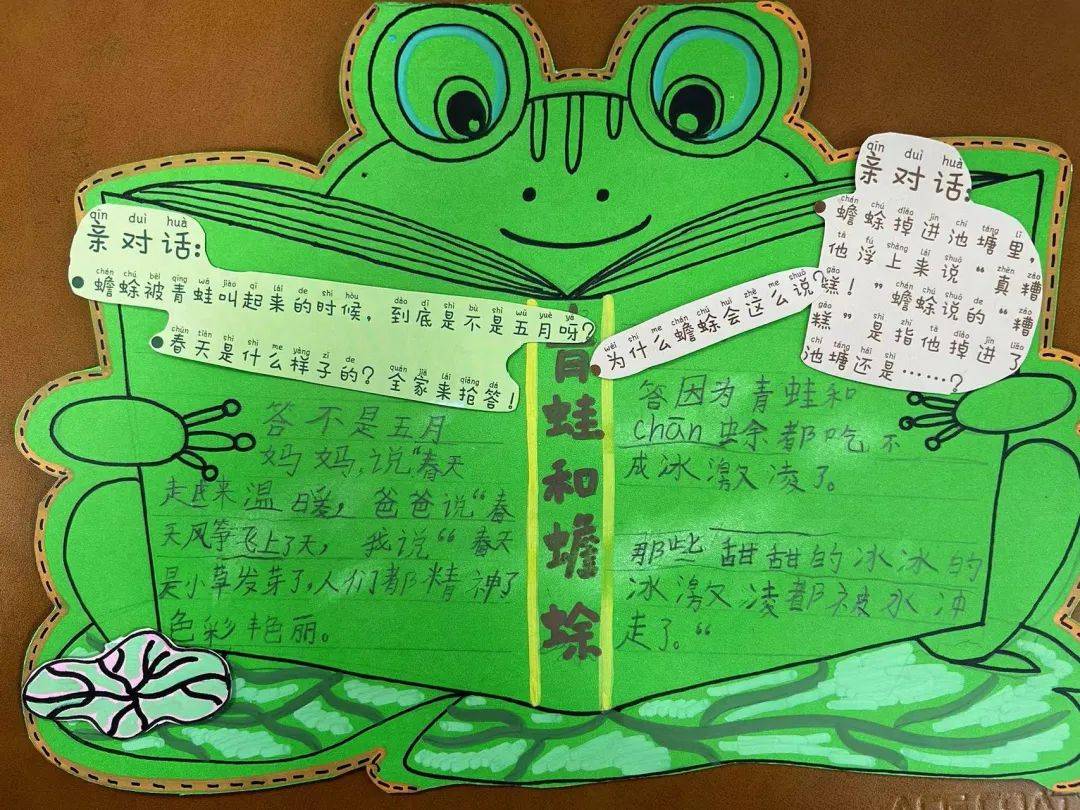 qīn duì huà
亲对话:
chán chú bèi qīng wā jiào qǐ lái de shí hòu dào dǐ shì bù shì wǔ yuè ya
蟾蜍被青蛙叫起来的时候，到底是不是五月呀?
chūn tiān shì shí me yàng zǐ de quán jiā lái qiǎng dá
春天是什么样子的? 全家来抢答!
答不是五月
妈妈，说“春天
走进来温暖，爸爸说“春
天风筝飞上了天，我说“春天
是小草发芽了，人们都精神了
色彩艳丽。
青蛙和蟾蜍
qīn duì huà
亲对话:
chán chú diào jìn chí táng lǐ
蟾蜍掉进池塘里，
tā fú shàng lái shuō zhēn zāo
他浮上来说“真糟
gāo chán chú shuō de zāo
糕！”蟾蜍说的“糟
gāo shì zhǐ tā diào jìn liǎo
糕”是指他掉进了
chí táng hái shì
池塘还是……?
wèi shí me chán chú huì zhè me shuō
为什么蟾蜍会这么说?
答因为青蛙和
chān 蜍都吃不
成冰激凌了。
那些甜甜的冰冰的
冰激凌都被水冲
走了。“